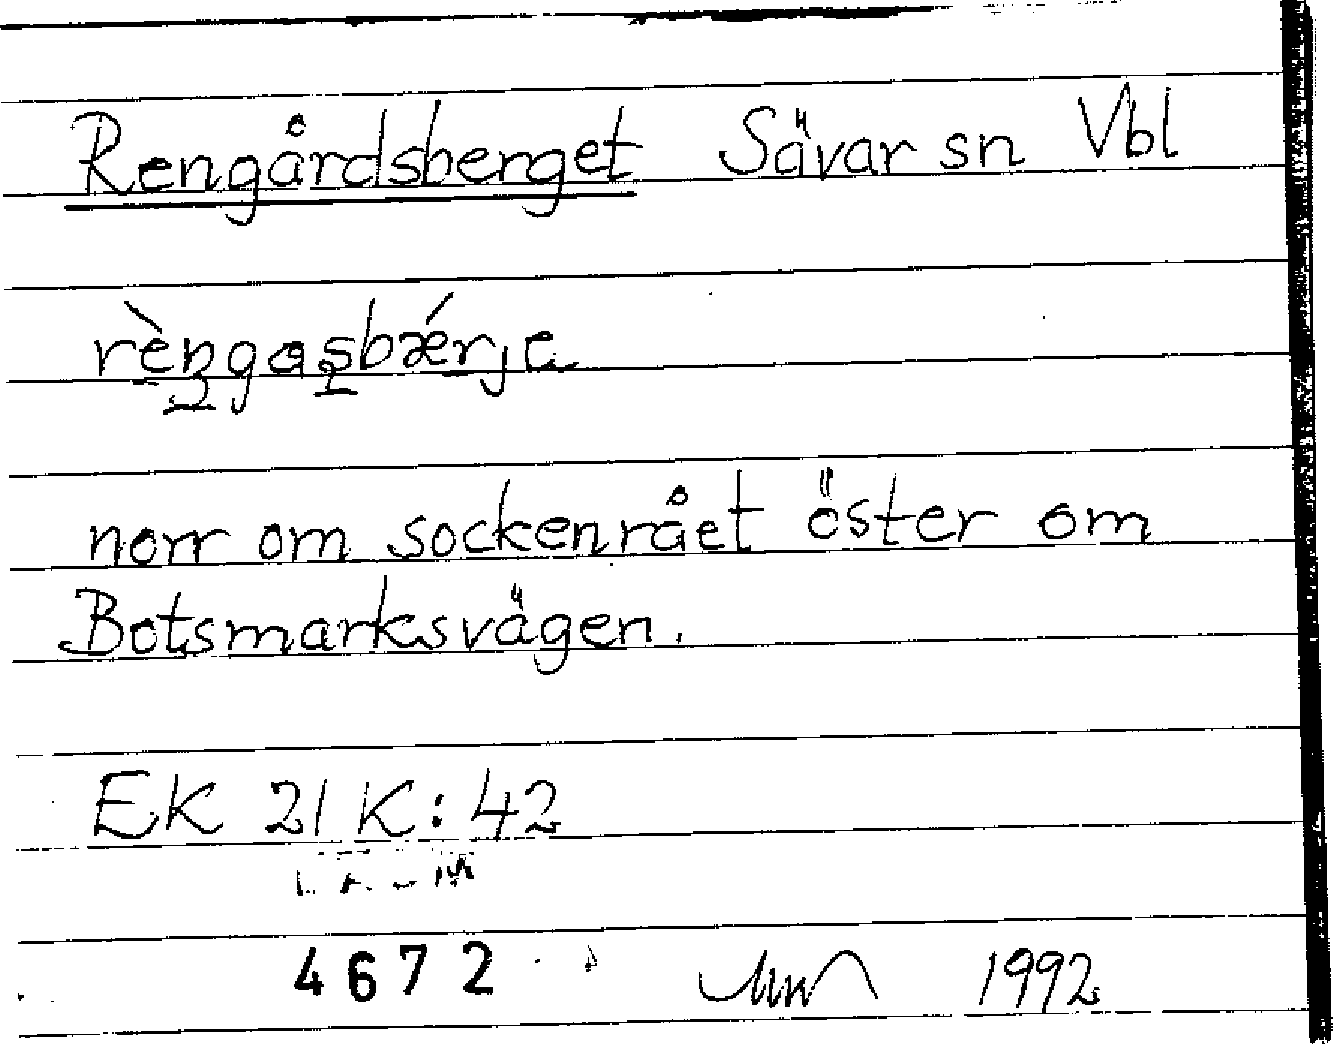 Rengårdsberget Sävar sn Vbl
rèngasbǽrje
norr om sockenrået öster om
Botsmarksvägen.
EK 21 K: 42
4672 1992